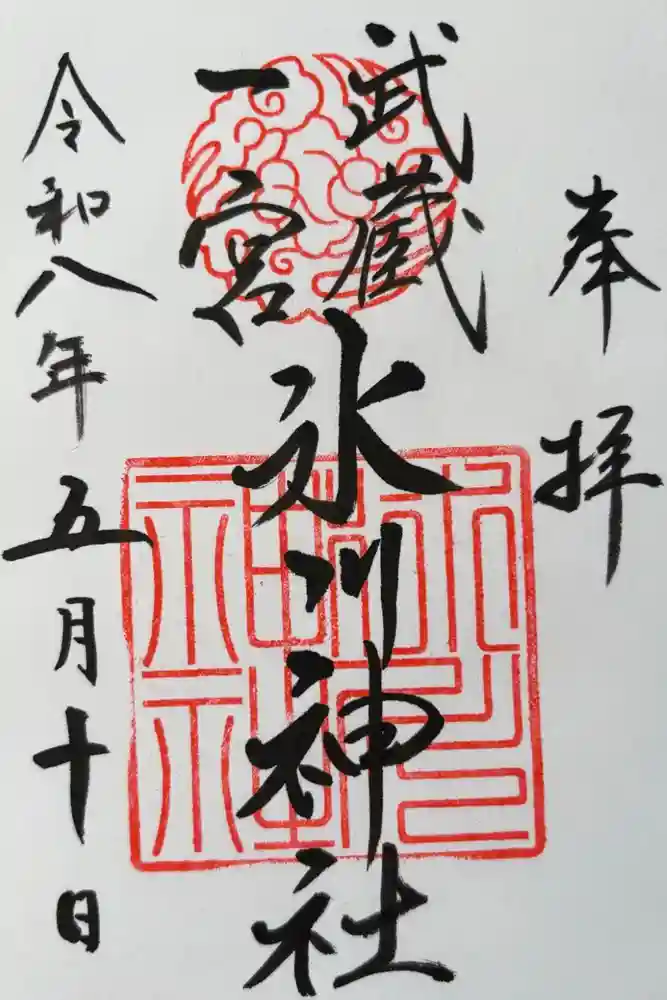 奉拝
武蔵
一宮
氷川神社
令和八年五月十日